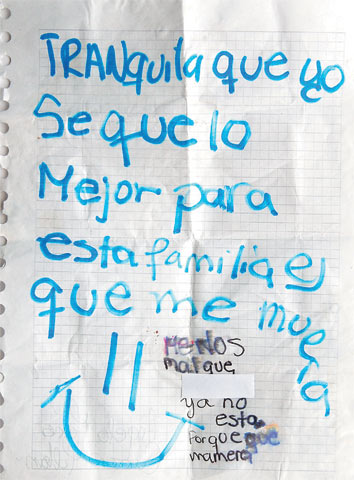 TRANquila que yo
Se que lo
Mejor para
esta familia es
que me muera
Menos
mal que
ya no
esta
Porque que
mamera